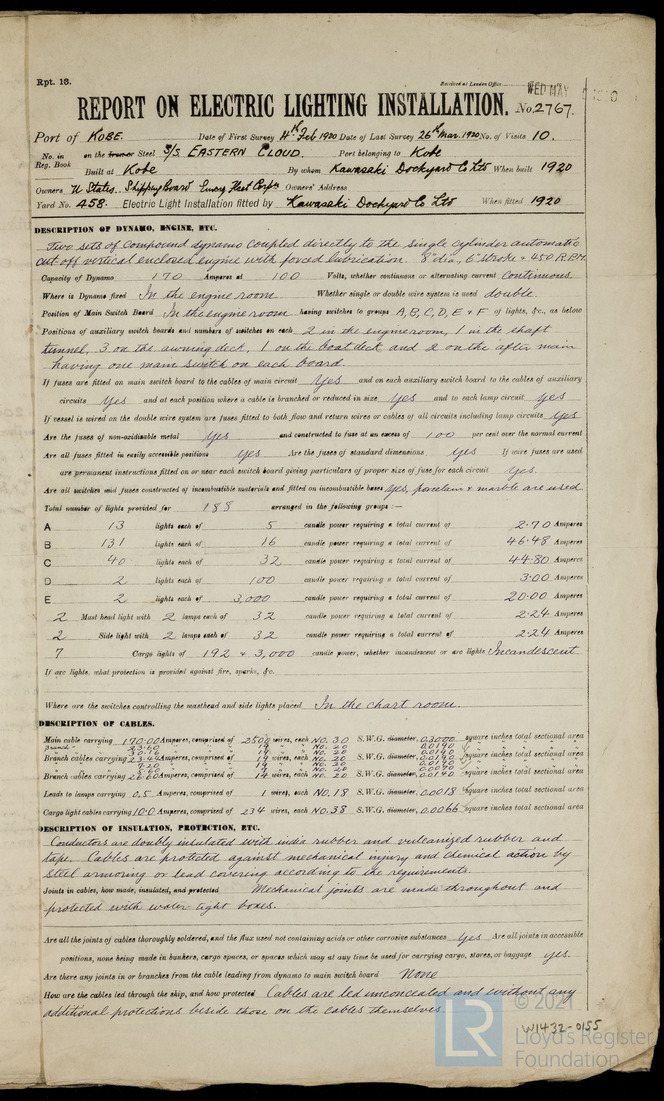 Rpt. 13.
Received at London Office
WED MAY
REPORT ON ELECTRIC LIGHTING INSTALLATION. No. 2767.
Port of KOBE. Date of First Survey 4th Feb 1920 Date of Last Survey 26th Mar. 1920 No. of Visits 10.
No. in Reg. Book on the Steel S/S EASTERN CLOUD. Port belonging to Kobe
Built at Kobe By whom Kawasaki Dockyard Co Ltd When built 1920
Owners U States. Shipping Board Emerg Fleet Corps Owners' Address
Yard No. 458. Electric Light Installation fitted by Kawasaki Dockyard Co Ltd When fitted 1920
DESCRIPTION OF DYNAMO, ENGINE, ETC.
Two sets of compound dynamo coupled directly to the single cylinder automatic
cut off vertical enclosed engine with forced lubrication. 8" dia, 6" stroke & 450 R.P.M.
Capacity of Dynamo 170 Amperes at 100 Volts, whether continuous or alternating current Continuous.
Where is Dynamo fixed In the engine room Whether single or double wire system is used double
Position of Main Switch Board In the engine room having switches to groups A, B, C, D, E & F of lights, &c., as below
Positions of auxiliary switch boards and numbers of switches on each 2 in the engine room, 1 in the shaft
tunnel, 3 on the awning deck, 1 on the boat deck and 2 on the after main
having one main switch on each board.
If fuses are fitted on main switch board to the cables of main circuit Yes and on each auxiliary switch board to the cables of auxiliary
circuits Yes and at each position where a cable is branched or reduced in size Yes and to each lamp circuit yes
If vessel is wired on the double wire system are fuses fitted to both flow and return wires or cables of all circuits including lamp circuits yes
Are the fuses of non-oxidizable metal yes and constructed to fuse at an excess of 100 per cent over the normal current
Are all fuses fitted in easily accessible positions yes Are the fuses of standard dimensions yes If wire fuses are used
are permanent instructions fitted on or near each switch board giving particulars of proper size of fuse for each circuit yes.
Are all switches and fuses constructed of incombustible materials and fitted on incombustible bases yes, porcelain & marble are used
Total number of lights provided for 188 arranged in the following groups :—
A 13 lights each of 5 candle power requiring a total current of 2.70 Amperes
B 131 lights each of 16 candle power requiring a total current of 46.48 Amperes
C 40 lights each of 32 candle power requiring a total current of 44.80 Amperes
D 2 lights each of 100 candle power requiring a total current of 3.00 Amperes
E 2 lights each of 3,000 candle power requiring a total current of 20.00 Amperes
2 Mast head light with 2 lamps each of 32 candle power requiring a total current of 2.24 Amperes
2 Side light with 2 lamps each of 32 candle power requiring a total current of 2.24 Amperes
7 Cargo lights of 192 & 3,000 candle power, whether incandescent or arc lights Incandescent.
If arc lights, what protection is provided against fire, sparks, &c.
Where are the switches controlling the masthead and side lights placed In the chart room.
DESCRIPTION OF CABLES.
Main cable carrying 170.00 Amperes, comprised of wires, each No. 30 S.W.G. diameter, 0.3000 square inches total sectional area
Branch cables carrying Amperes, comprised of 19 wires, each No. 20 S.W.G. diameter, square inches total sectional area
Branch cables carrying Amperes, comprised of 14 wires, each No. 20 S.W.G. diameter, 0.0140 square inches total sectional area
Leads to lamps carrying 0.5 Amperes, comprised of 1 wires, each No. 18 S.W.G. diameter, 0.0018 square inches total sectional area
Cargo light cables carrying 10.0 Amperes, comprised of 234 wires, each No. 38 S.W.G. diameter, 0.0066 square inches total sectional area
DESCRIPTION OF INSULATION, PROTECTION, ETC.
Conductors are doubly insulated with india rubber and vulcanized rubber and
tape. Cables are protected against mechanical injury and chemical action by
steel armoring or lead covering according to the requirements.
Joints in cables, how made, insulated, and protected Mechanical joints are made throughout and
protected with water-tight boxes.
Are all the joints of cables thoroughly soldered, and the flux used not containing acids or other corrosive substances yes Are all joints in accessible
positions, none being made in bunkers, cargo spaces, or spaces which may at any time be used for carrying cargo, stores, or baggage yes.
Are there any joints in or branches from the cable leading from dynamo to main switch board None
How are the cables led through the ship, and how protected Cables are led unconcealed and without any
additional protections beside those on the cables themselves.
© 2021
W1432-0155
LR Lloyd's Register
Foundation